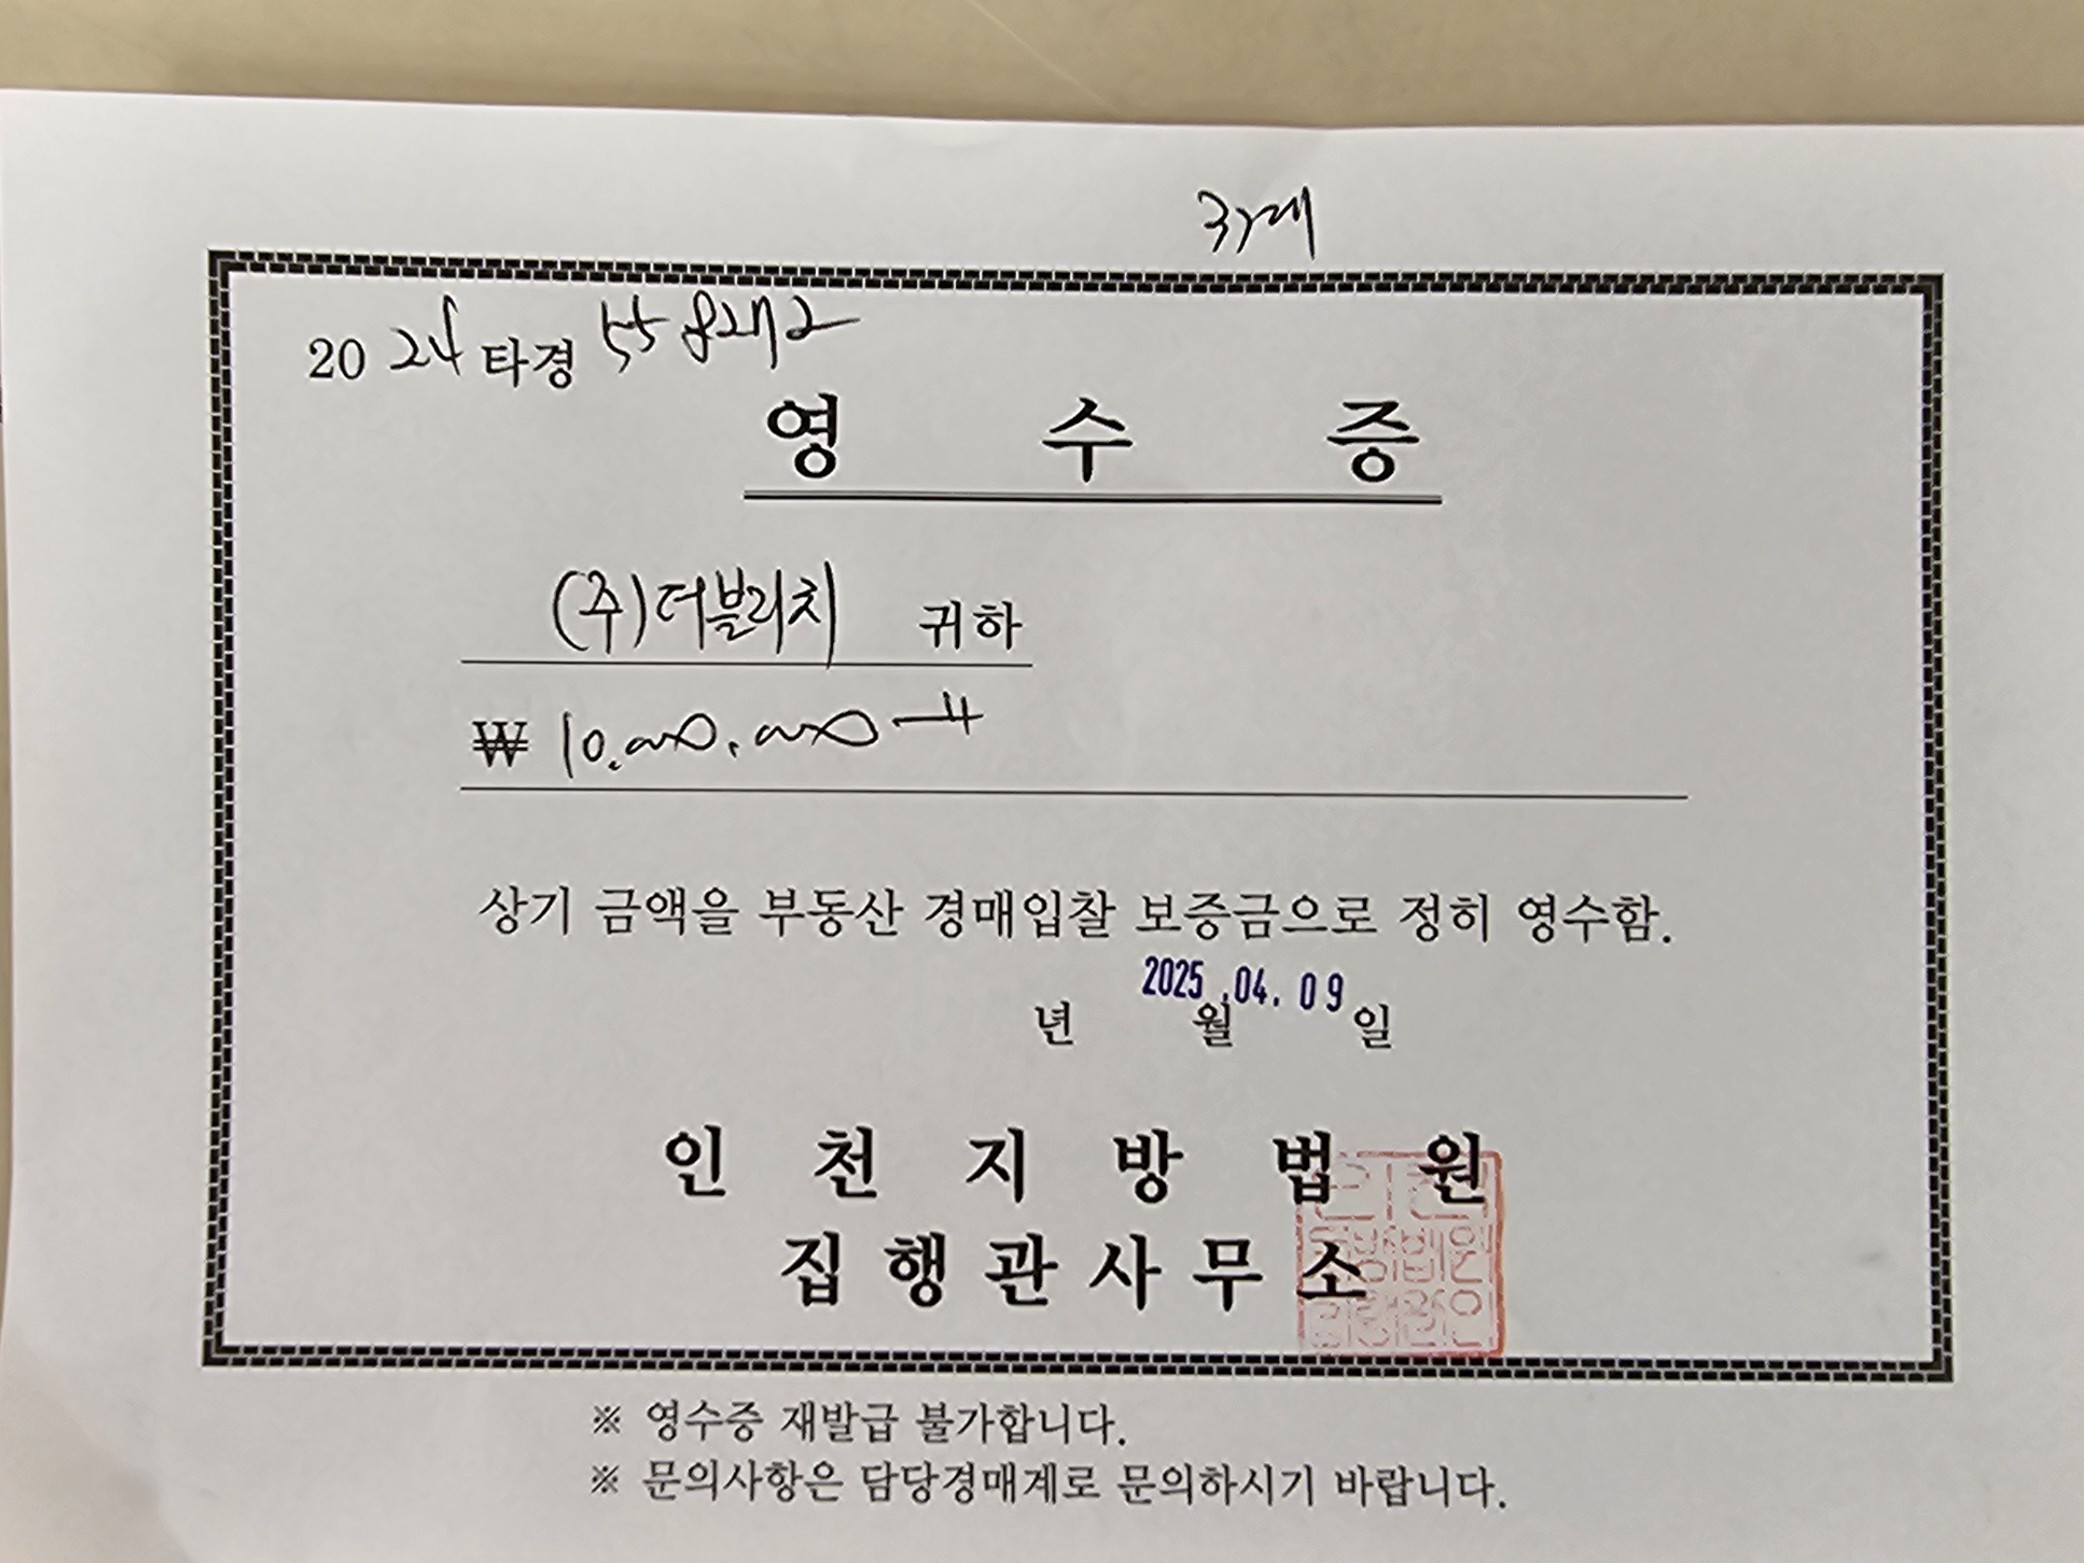 37계
2024타경 558272
영 수 증
(주)더블리치 귀하
₩ 10.000.000-
상기 금액을 부동산 경매입찰 보증금으로 정히 영수함.
2025.04.09
년 월 일
인 천 지 방 법 원
집 행 관 사 무 소
※ 영수증 재발급 불가합니다.
※ 문의사항은 담당경매계로 문의하시기 바랍니다.